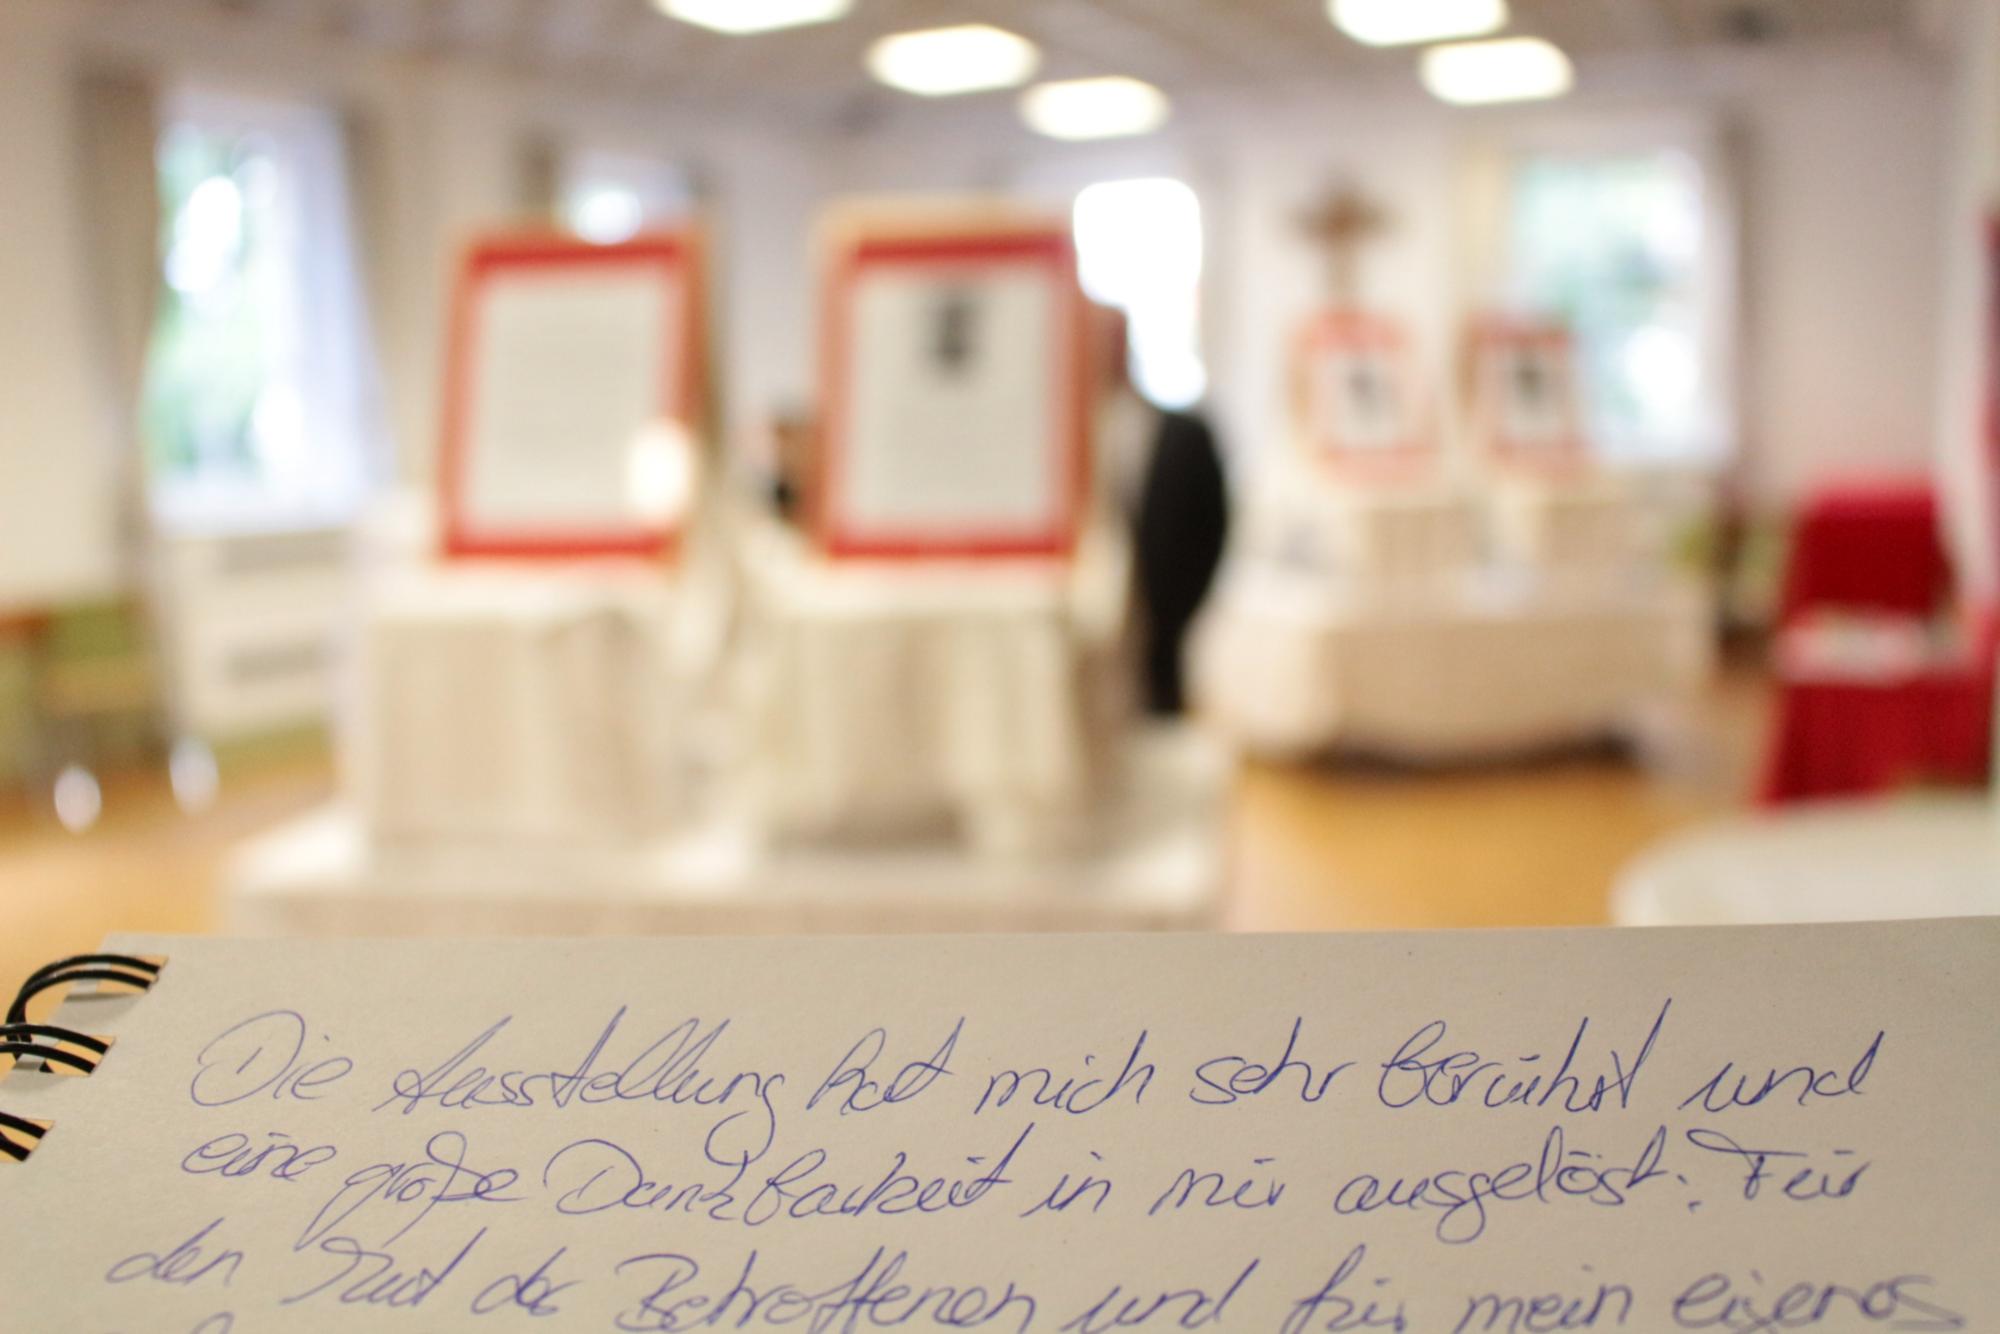 Die Ausstellung hat mich sehr berührt und
eine große Dankbarkeit in mir ausgelöst: Für
den Mut der Betroffenen und für mein eigenes